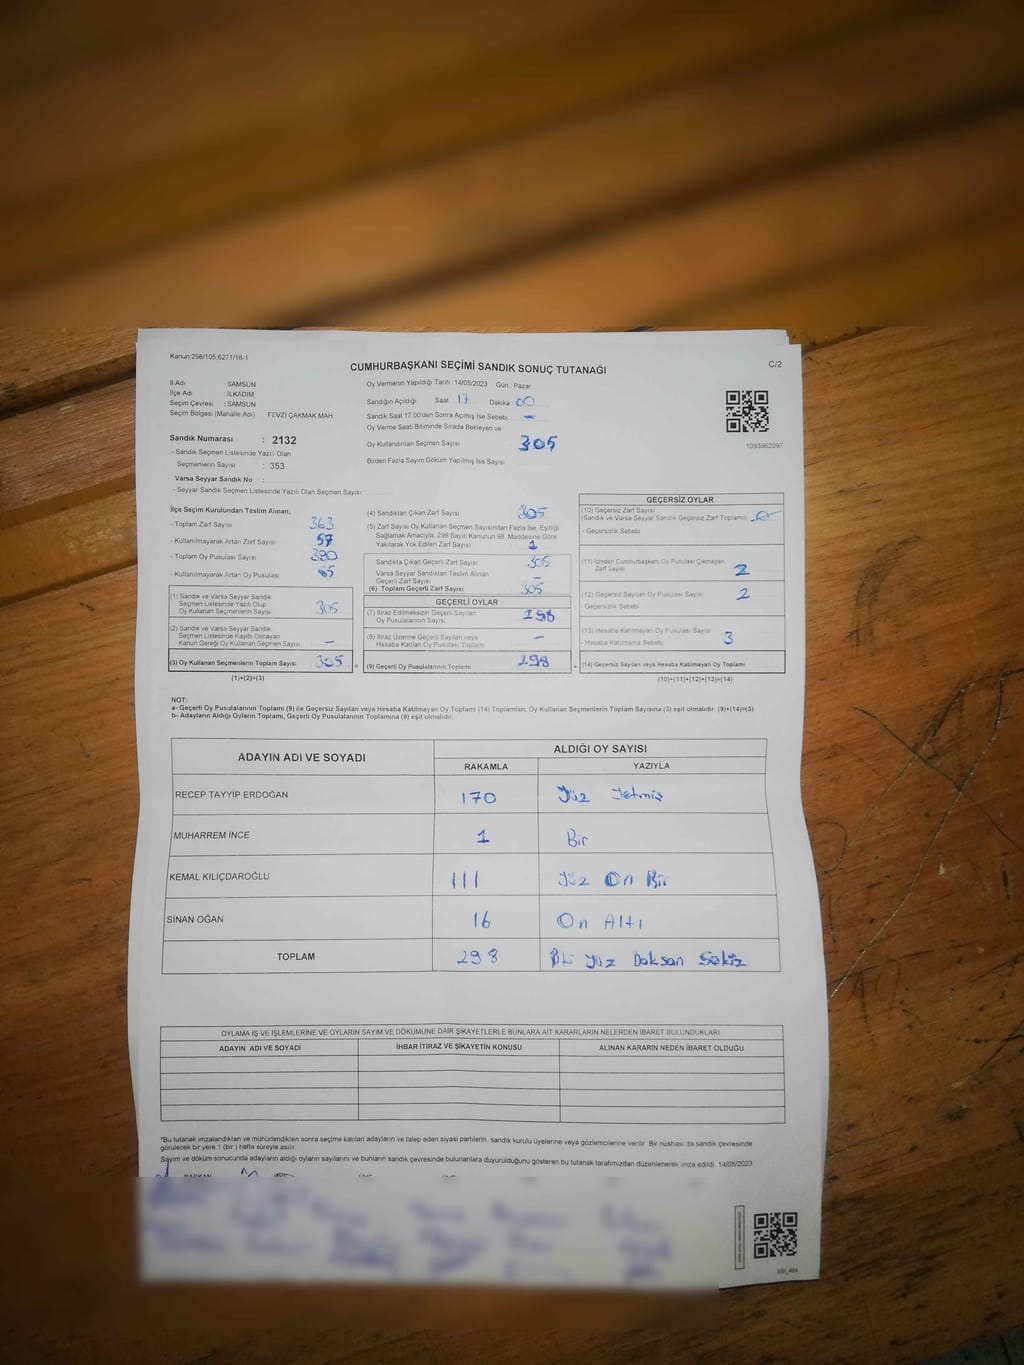 Kanun;298/105,6271/18-1
C/2
CUMHURBAŞKANI SEÇİMİ SANDIK SONUÇ TUTANAĞI
İl Adı SAMSUN
İlçe Adı İLKADIM
Seçim Çevresi : SAMSUN
Seçim Bölgesi (Mahalle Adı) FEVZİ ÇAKMAK MAH.
Sandık Numarası : 2132
- Sandık Seçmen Listesinde Yazılı Olan
Seçmenlerin Sayısı : 353
Varsa Seyyar Sandık No :
- Seyyar Sandık Seçmen Listesinde Yazılı Olan Seçmen Sayısı
Oy Vermenin Yapıldığı Tarih :14/05/2023 Gün : Pazar
Sandığın Açıldığı Saat 17 Dakika : 00
Sandık Saat 17:00'den Sonra Açılmış İse Sebebi : —
Oy Verme Saati Bitiminde Sırada Bekleyen ve
Oy Kullandırılan Seçmen Sayısı 305
Birden Fazla Sayım Döküm Yapılmış İse Sayısı
1093962097
İlçe Seçim Kurulundan Teslim Alınan;
- Toplam Zarf Sayısı 363
- Kullanılmayarak Artan Zarf Sayısı 57
- Toplam Oy Pusulası Sayısı
- Kullanılmayarak Artan Oy Pusulası
(1) Sandık ve Varsa Seyyar Sandık
Seçmen Listesinde Yazılı Olup
Oy Kullanan Seçmenlerin Sayısı 305
(2) Sandık ve Varsa Seyyar Sandık
Seçmen Listesinde Kayıtlı Olmayan
Kanun Gereği Oy Kullanan Seçmen Sayısı —
(3) Oy Kullanan Seçmenlerin Toplam Sayısı 305
(1)+(2)=(3)
(4) Sandıktan Çıkan Zarf Sayısı 305
(5) Zarf Sayısı Oy Kullanan Seçmen Sayısından Fazla İse, Eşitliği
Sağlamak Amacıyla; 298 Sayılı Kanunun 98. Maddesine Göre
Yakılarak Yok Edilen Zarf Sayısı 1
Sandıkta Çıkan Geçerli Zarf Sayısı 305
Varsa Seyyar Sandıktan Teslim Alınan
Geçerli Zarf Sayısı —
(6) Toplam Geçerli Zarf Sayısı 305
GEÇERLİ OYLAR
(7) İtiraz Edilmeksizin Geçerli Sayılan
Oy Pusulalarının Sayısı 298
(8) İtiraz Üzerine Geçerli Sayılan veya
Hesaba Katılan Oy Pusulası Toplamı —
= (9) Geçerli Oy Pusulalarının Toplamı 298
GEÇERSİZ OYLAR
(10) Geçersiz Zarf Sayısı
(Sandık ve Varsa Seyyar Sandık Geçersiz Zarf Toplamı)
- Geçersizlik Sebebi
(11) İçinden Cumhurbaşkanı Oy Pusulası Çıkmayan
Zarf Sayısı 2
(12) Geçersiz Sayılan Oy Pusulası Sayısı 2
- Geçersizlik Sebebi
(13) Hesaba Katılmayan Oy Pusulası Sayısı 3
- Hesaba Katılmama Sebebi
+ (14) Geçersiz Sayılan veya Hesaba Katılmayan Oy Toplamı
(10)+(11)+(12)+(13)=(14)
NOT:
a- Geçerli Oy Pusulalarının Toplamı (9) ile Geçersiz Sayılan veya Hesaba Katılmayan Oy Toplamı (14) Toplamları, Oy Kullanan Seçmenlerin Toplam Sayısına (3) eşit olmalıdır. (9)+(14)=(3)
b- Adayların Aldığı Oyların Toplamı, Geçerli Oy Pusulalarının Toplamına (9) eşit olmalıdır.
ADAYIN ADI VE SOYADI ALDIĞI OY SAYISI
RAKAMLA YAZIYLA
RECEP TAYYİP ERDOĞAN 170 Yüz Yetmiş
MUHARREM İNCE 1 Bir
KEMAL KILIÇDAROĞLU 111 Yüz On Bir
SİNAN OĞAN 16 On Altı
TOPLAM 298 Yüz Doksan Sekiz
OYLAMA İŞ VE İŞLEMLERİNE VE OYLARIN SAYIM VE DÖKÜMÜNE DAİR ŞİKAYETLERLE BUNLARA AİT KARARLARIN NELERDEN İBARET BULUNDUKLARI
ADAYIN ADI VE SOYADI İHBAR İTİRAZ VE ŞİKAYETİN KONUSU ALINAN KARARIN NEDEN İBARET OLDUĞU
*Bu tutanak imzalandıktan ve mühürlendikten sonra seçime katılan adayların ve talep eden siyasi partilerin sandık kurulu üyelerine veya gözlemcilerine verilir. Bir nüshası da sandık çevresinde
görülecek bir yere 1 (bir ) hafta süreyle asılır.
Sayım ve döküm sonucunda adayların aldığı oyların sayılarını ve bunların sandık çevresinde bulunanlara duyurulduğunu gösteren bu tutanak tarafımızdan düzenlenerek imza edildi. 14/05/2023
BAŞKAN